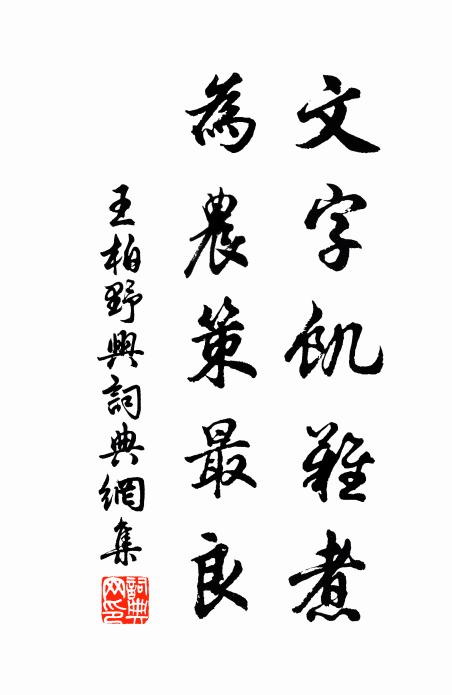 文字飢難煮
為農策最良
王柏野興詞典網集
詞典網印